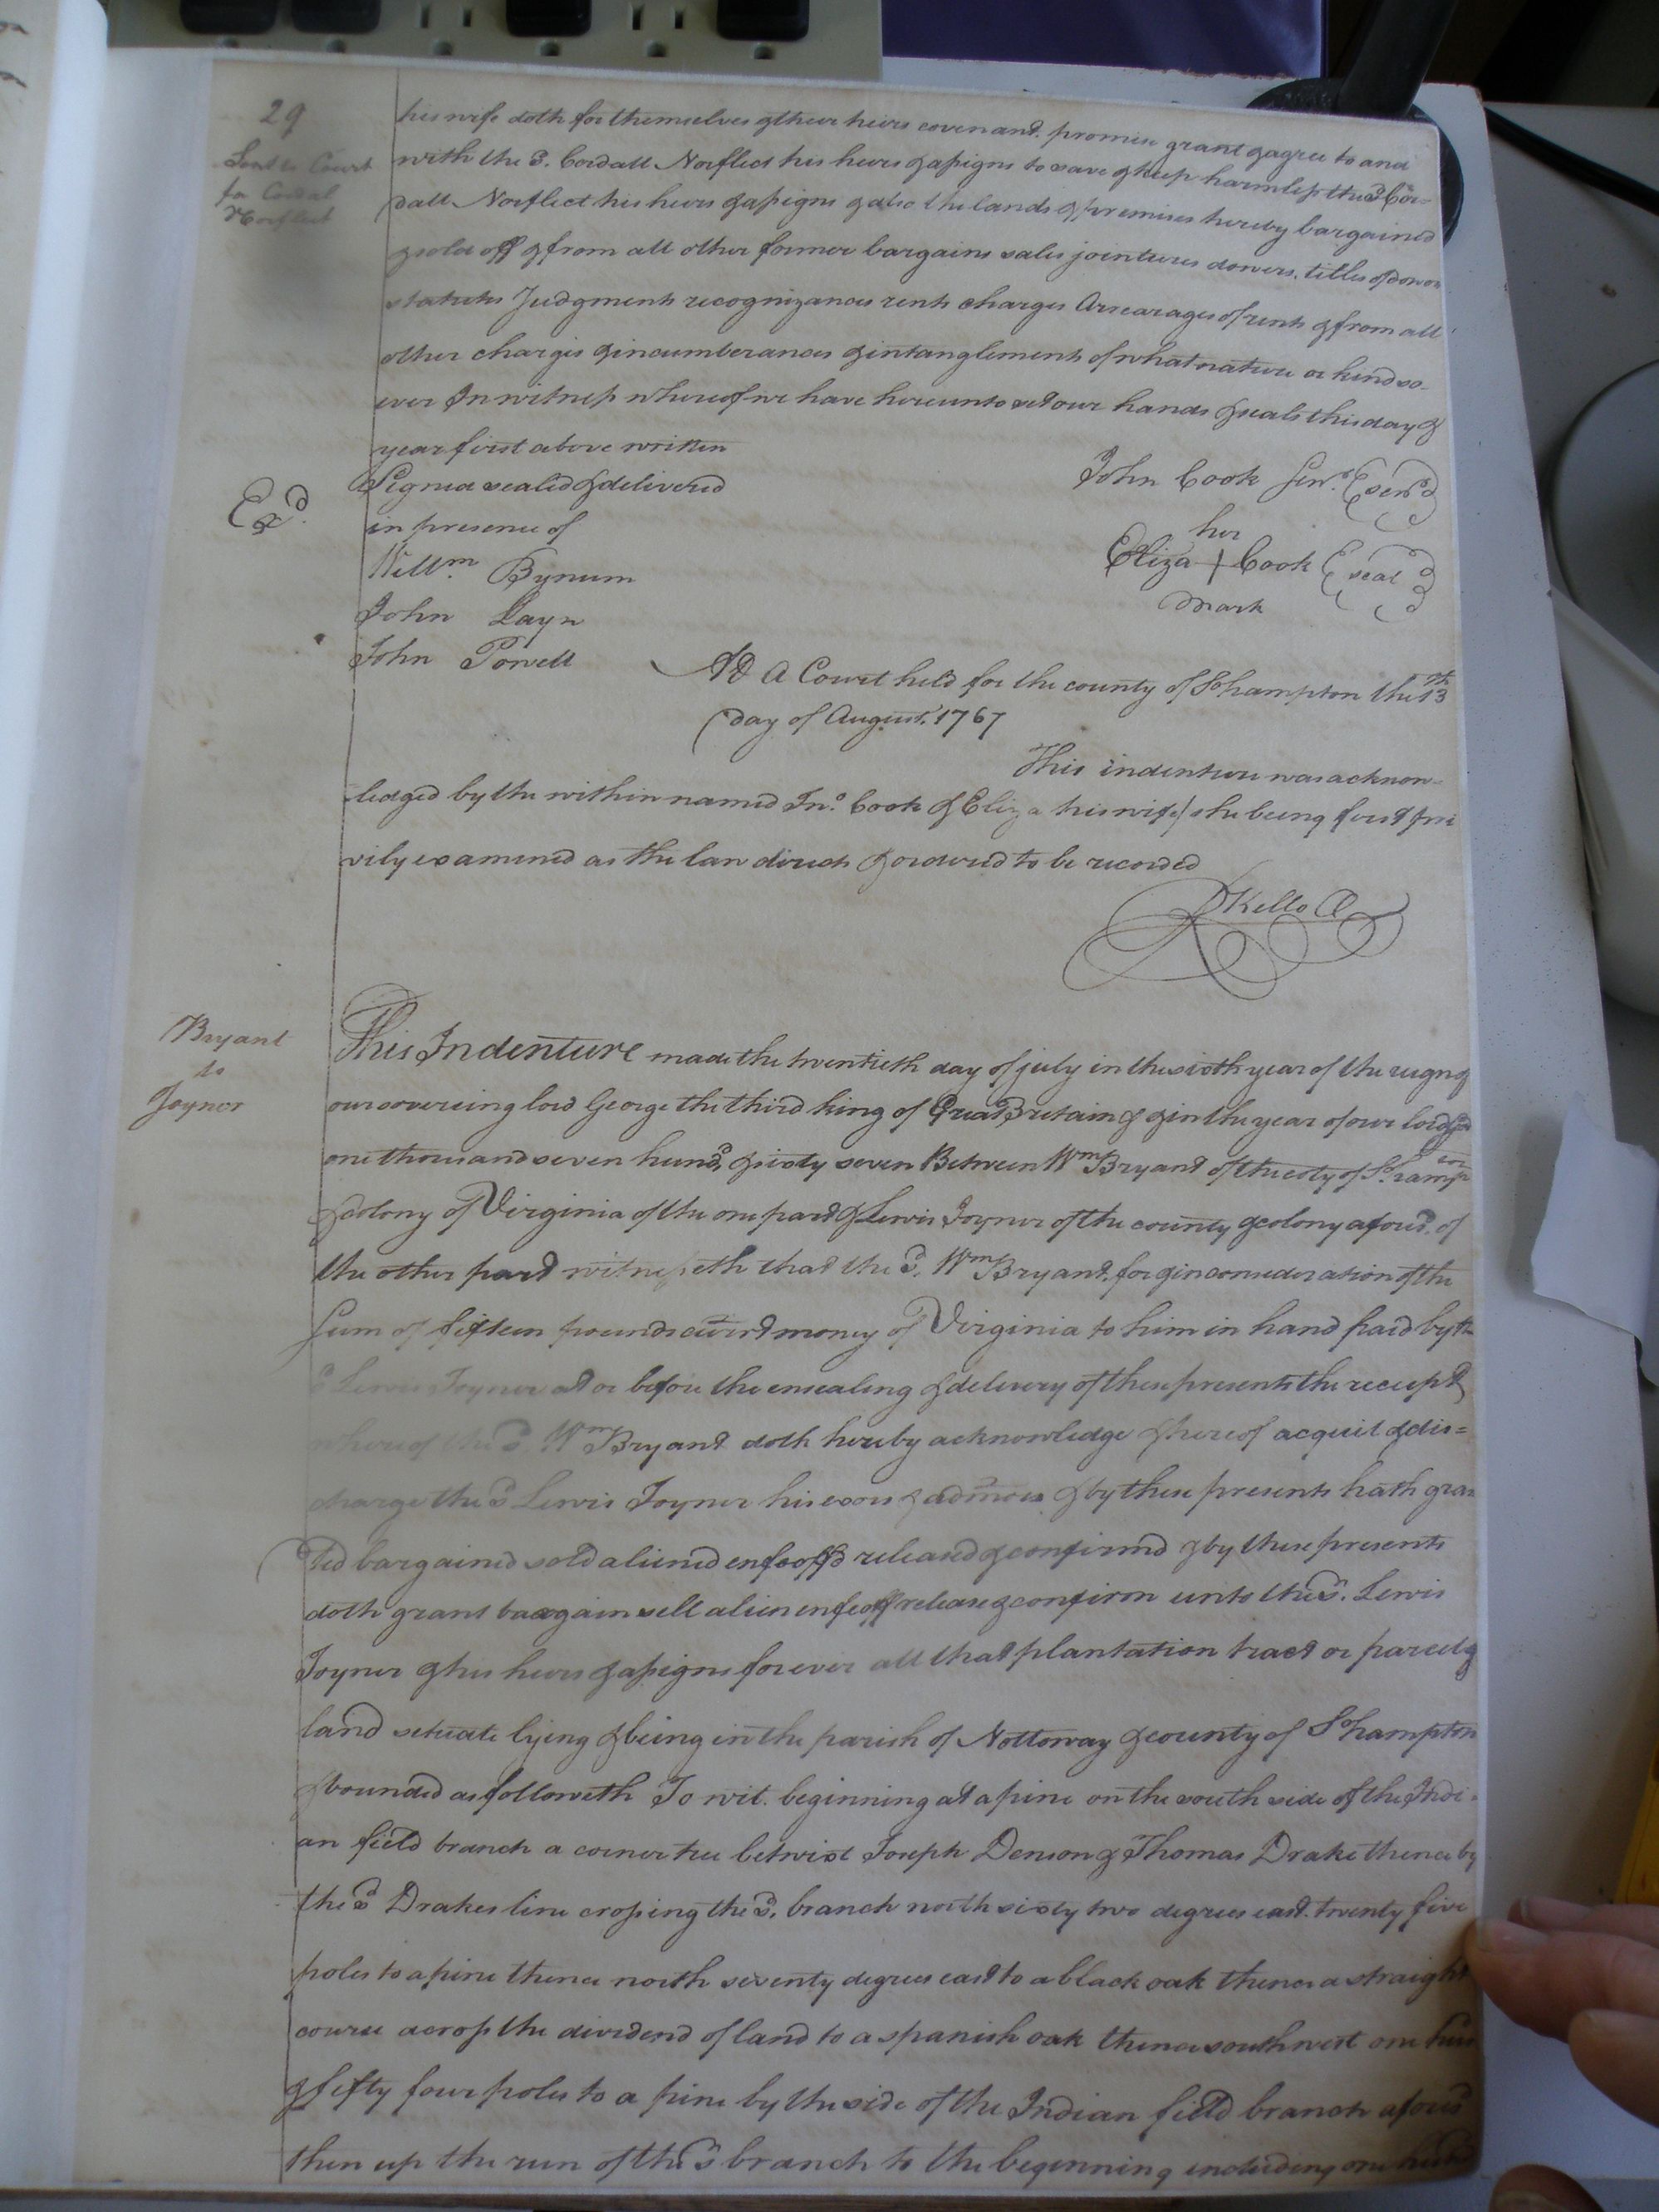 29
Sent to Court
for Cordal
Norfleet
his wife doth for themselves & their heirs covenant promise grant & agree to and
with the sd. Cordall Norfleet his heirs & assigns to save & keep harmless the sd Cor=
dall Norfleet his heirs & assigns & also the lands & premises hereby bargained
& sold off & from all other former bargains sales jointures dowers, titles of dower
statutes Judgments recognizances rents charges Arrearages of rents & from all
other charges & incumberances & intanglements of what nature or kind so-
ever In witness whereof we have hereunto set our hands & seals this day &
year first above written
Signed sealed & delivered
in presence of
Exd.
Willm. Bynum
John Layn
John Powell
John Cook Senr.
her
Eliza + Cook seal
mark
At a Court held for the county of So.hampton the 13th
day of August. 1767
This indenture was acknow-
ledged by the within named Jno. Cook & Eliza his wife / she being first pri
vily examined as the law directs & ordered to be recorded
RKello Cl
Bryant
to
Joyner
This Indenture made the twentieth day of july in the sixth year of the reign of
our sovereing lord George the third king of Great Britain & & in the year of our lord
one thousand seven hund. & sixty seven Between Wm Bryant of the coty of So.hamp
& colony of Virginia of the one part & Lewis Joyner of the county & colony aforesd. of
the other part witnesseth that the sd. Wm Bryant, for & in consideration of the
sum of fifteen pounds currt money of Virginia to him in hand paid by the
sd Lewis Joyner at or before the ensealing & delivery of these presents the receipt
whereof the sd Wm Bryant doth hereby acknowledge & hereof acquit & dis=
charge the sd Lewis Joyner his exors & admors & by these presents hath gran
ted bargained sold aliened enfeoff'd released & confirmd & by these presents
doth grant bargain sell alien enfeoff release & confirm unto the sd. Lewis
Joyner & his heirs & assigns forever all that plantation tract or parcel of
land setuate lying & being in the parish of Nottoway & county of So.hampton
& bounded as followeth To wit. beginning at a pine on the south side of the Indi-
an field branch a corner tree betwixt Joseph Denson & Thomas Drake thence by
the sd Drakes line crossing the sd. branch north sixty two degrees east. twenty five
poles to a pine thence north seventy degrees east to a black oak thence a straight
course across the dividend of land to a spanish oak thence southwest one hun
& fifty four poles to a pine by the side of the Indian field branch aforesd
then up the run of the sd branch to the beginning including one hund